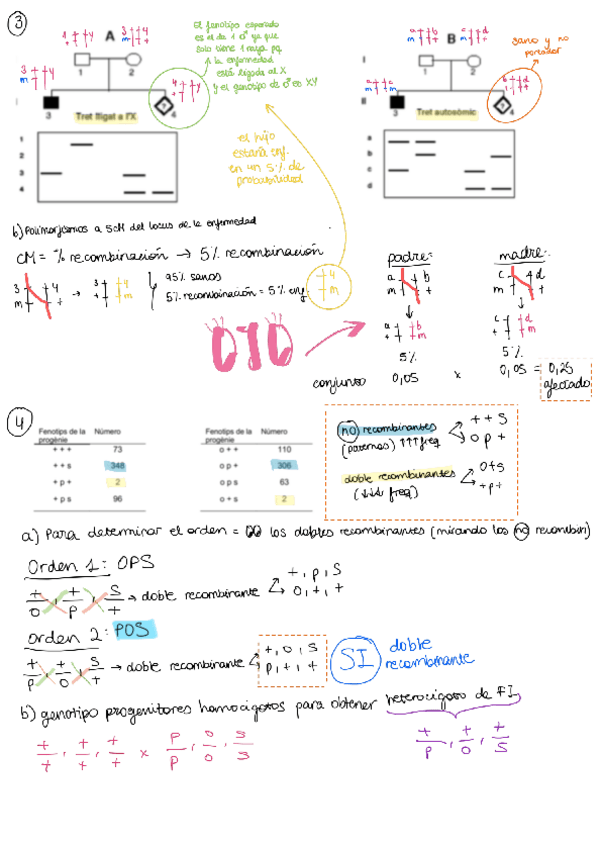 ③
1 + + y
A
3 + + 4
m + +
El genotipo esperado
es el de 1 ♂ ya que
solo tiene 1 maya pq
la enfermedad
está ligada al X
y el genotipo de ♂ es XY
a + + b
B
c + + d
m + +
sano y no
portador
I
1
2
3
4
Tret lligat a l'X
II
3
4
Tret autosòmic
1
2
3
4
a
b
c
d
el hijo
estaría enf.
en un 5% de
probabilidad
b) Polimorfismos a 5cM del locus de la enfermedad
CM = % recombinación → 5% recombinación
3 4
m +
→
3 4
+ m
95% sanos
5% recombinación = 5% enf.
4
m
OJO
padre:
a b
m +
↓
a b
+ m
5%
madre:
c d
m +
↓
c d
+ m
5%
conjunto 0,05 x 0,05 = 0,25
afectado
④
Fenotips de la progènie Número
+ + + 73
+ + s 348
+ p + 2
+ p s 96
Fenotips de la progènie Número
o + + 110
o p + 306
o p s 63
o + s 2
no recombinantes
(paternos) ↑↑↑ freq
+ + s
o p +
doble recombinantes
(↓↓↓ freq)
o + s
+ p +
a) Para determinar el orden = los dobles recombinantes (mirando los no recombin)
Orden 1: OPS
+ + s
o p +
→ doble recombinante
+, p, s
o, +, +
orden 2: POS
+ + s
p o +
→ doble recombinante
+, o, s
p, +, +
SI
doble
recombinante
b) genotipo progenitores homocigotos para obtener heterocigoto de F1
+/+, +/+, +/+ x p/p, o/o, s/s
+/p, +/o, +/s